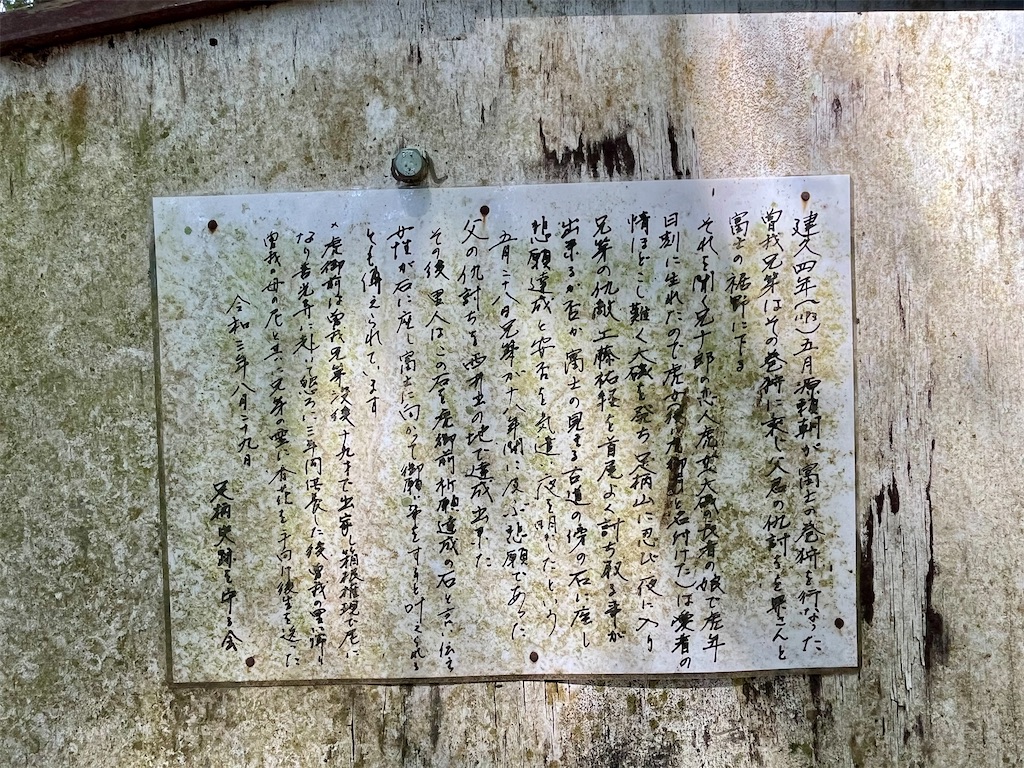 建久四年(1193)五月源頼朝が富士の巻狩を行なった
曽我兄弟はその巻狩に乗じ父君の仇討ちを果さんと
富士の裾野に下る
それを聞く兄十郎の恋人虎女(大磯の長者の娘で虎年
日刻に生れたので虎女後虎御前と名付けた)は愛着の
情ほどこし難く大磯を発ち足柄山に忍び夜に入り
兄弟の仇敵工藤祐経を首尾よく討ち取る事が
出来るか否か富士の見える古道の傍の石に座し
悲願達成と安否を気遣い夜を明かしたという
五月二十八日兄弟が十八年間に及ぶ悲願であった
父の仇討ちを西富士の地で達成出来た
その後里人はこの石を虎御前祈願達成の石と言い伝え
女性が石に座し富士に向かって御願い事をすると叶えられる
とも伝えられています
*虎御前は曽我兄弟没後十九才で出家し箱根権現で尼に
なり善光寺に赴いて懇ろに三年間供養した後曽我の里に帰り
曽我の母の尼と共に兄弟の霊に香華を手向け後生を送った
令和三年八月二十九日
足柄史跡を守る会